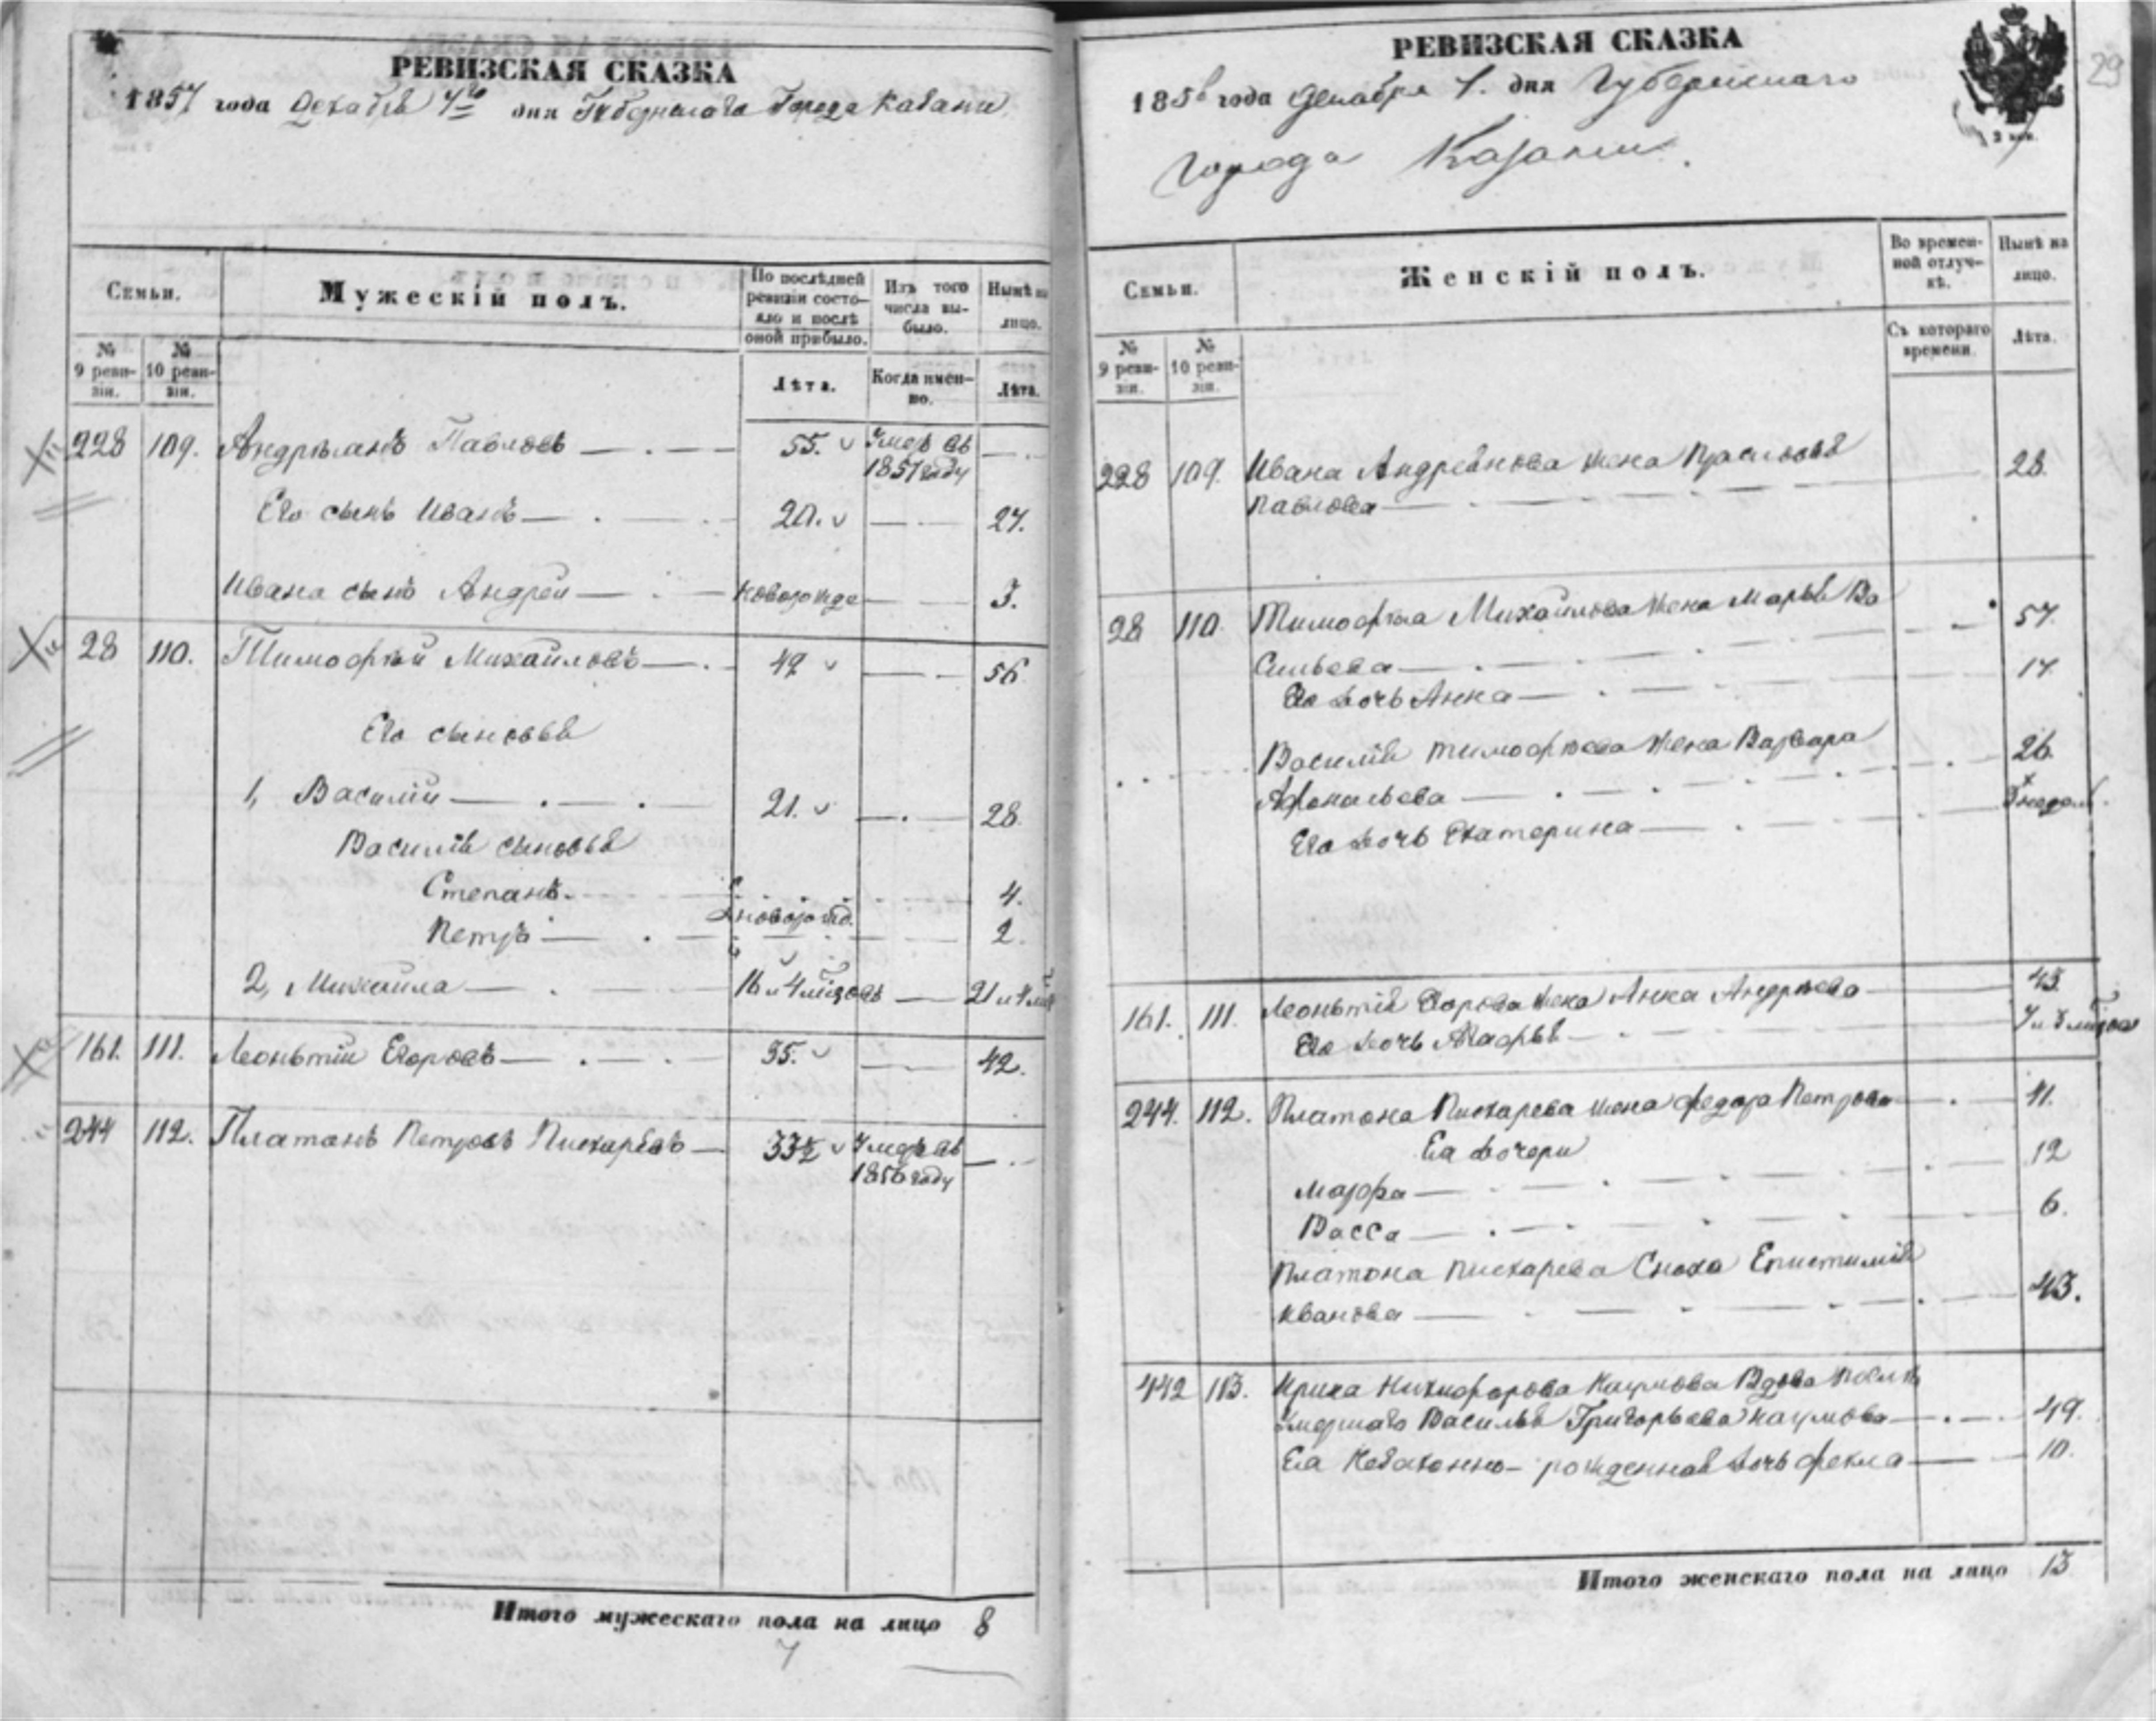 РЕВИЗСКАЯ СКАЗКА
1857 года Декабря 4го дня Губернскаго Города Казани
Семьи.
Мужескій полъ.
По послѣдней ревизіи состояло и послѣ оной прибыло.
Изъ того числа выбыло.
Нынѣ на лицо.
№ 9 ревизіи.
№ 10 ревизіи.
Лѣта.
Когда именно.
Лѣта.
228 109. Андреянъ Павловъ 55. Умеръ въ
1857 году
Его сынъ Иванъ 20. 27.
Ивана сынъ Андрей новорожде 3.
28 110. Тимофѣй Михайловъ 49 56
Его сыновья
1, Василій 21. 28
Василія сыновья
Степанъ 4.
новорожд.
Петръ 2.
2, Михайла 16 и 4 мѣсцовъ 21 и 4 мѣс
161. 111. Леонътій Егоровъ 35. 42.
244 112. Платонъ Петровъ Пискаревъ 33½ Умеръ въ
1856 году
Итого мужескаго пола на лицо 8
7
РЕВИЗСКАЯ СКАЗКА
29
185 года Декабря 4. дня Губернскаго
3 коп.
города Казани.
Семьи.
Женскій полъ.
Во временной отлучкѣ.
Нынѣ на лицо.
№ 9 ревизіи.
№ 10 ревизіи.
Съ котораго времени.
Лѣта.
228 109. Ивана Андреянова жена 28.
Павлова
28 110 Тимофѣя Михайлова жена Марья Ва 57.
сильева
Его дочь Анна 17.
Василія Тимофѣева жена Варвара 26.
Афонасьева
Его дочь Екатерина недел.
161. 111. Леонътія Егорова жена Анна Андрѣева 43
Его дочь Агафья 7 и мѣсцов
244. 112. Платона Пискарева жена Федора Петрова 41.
Еа дочери
Марфа 12
Васса 6.
Платона Пискарева Сноха Епистимія
Иванова 43.
442 113. Ирина Никифорова Наумова Вдова послѣ
умершаго Василья Григорьева Наумова 49.
Еа Незаконно-рожденная дочь Фекла 10.
Итого женскаго пола на лицо 13